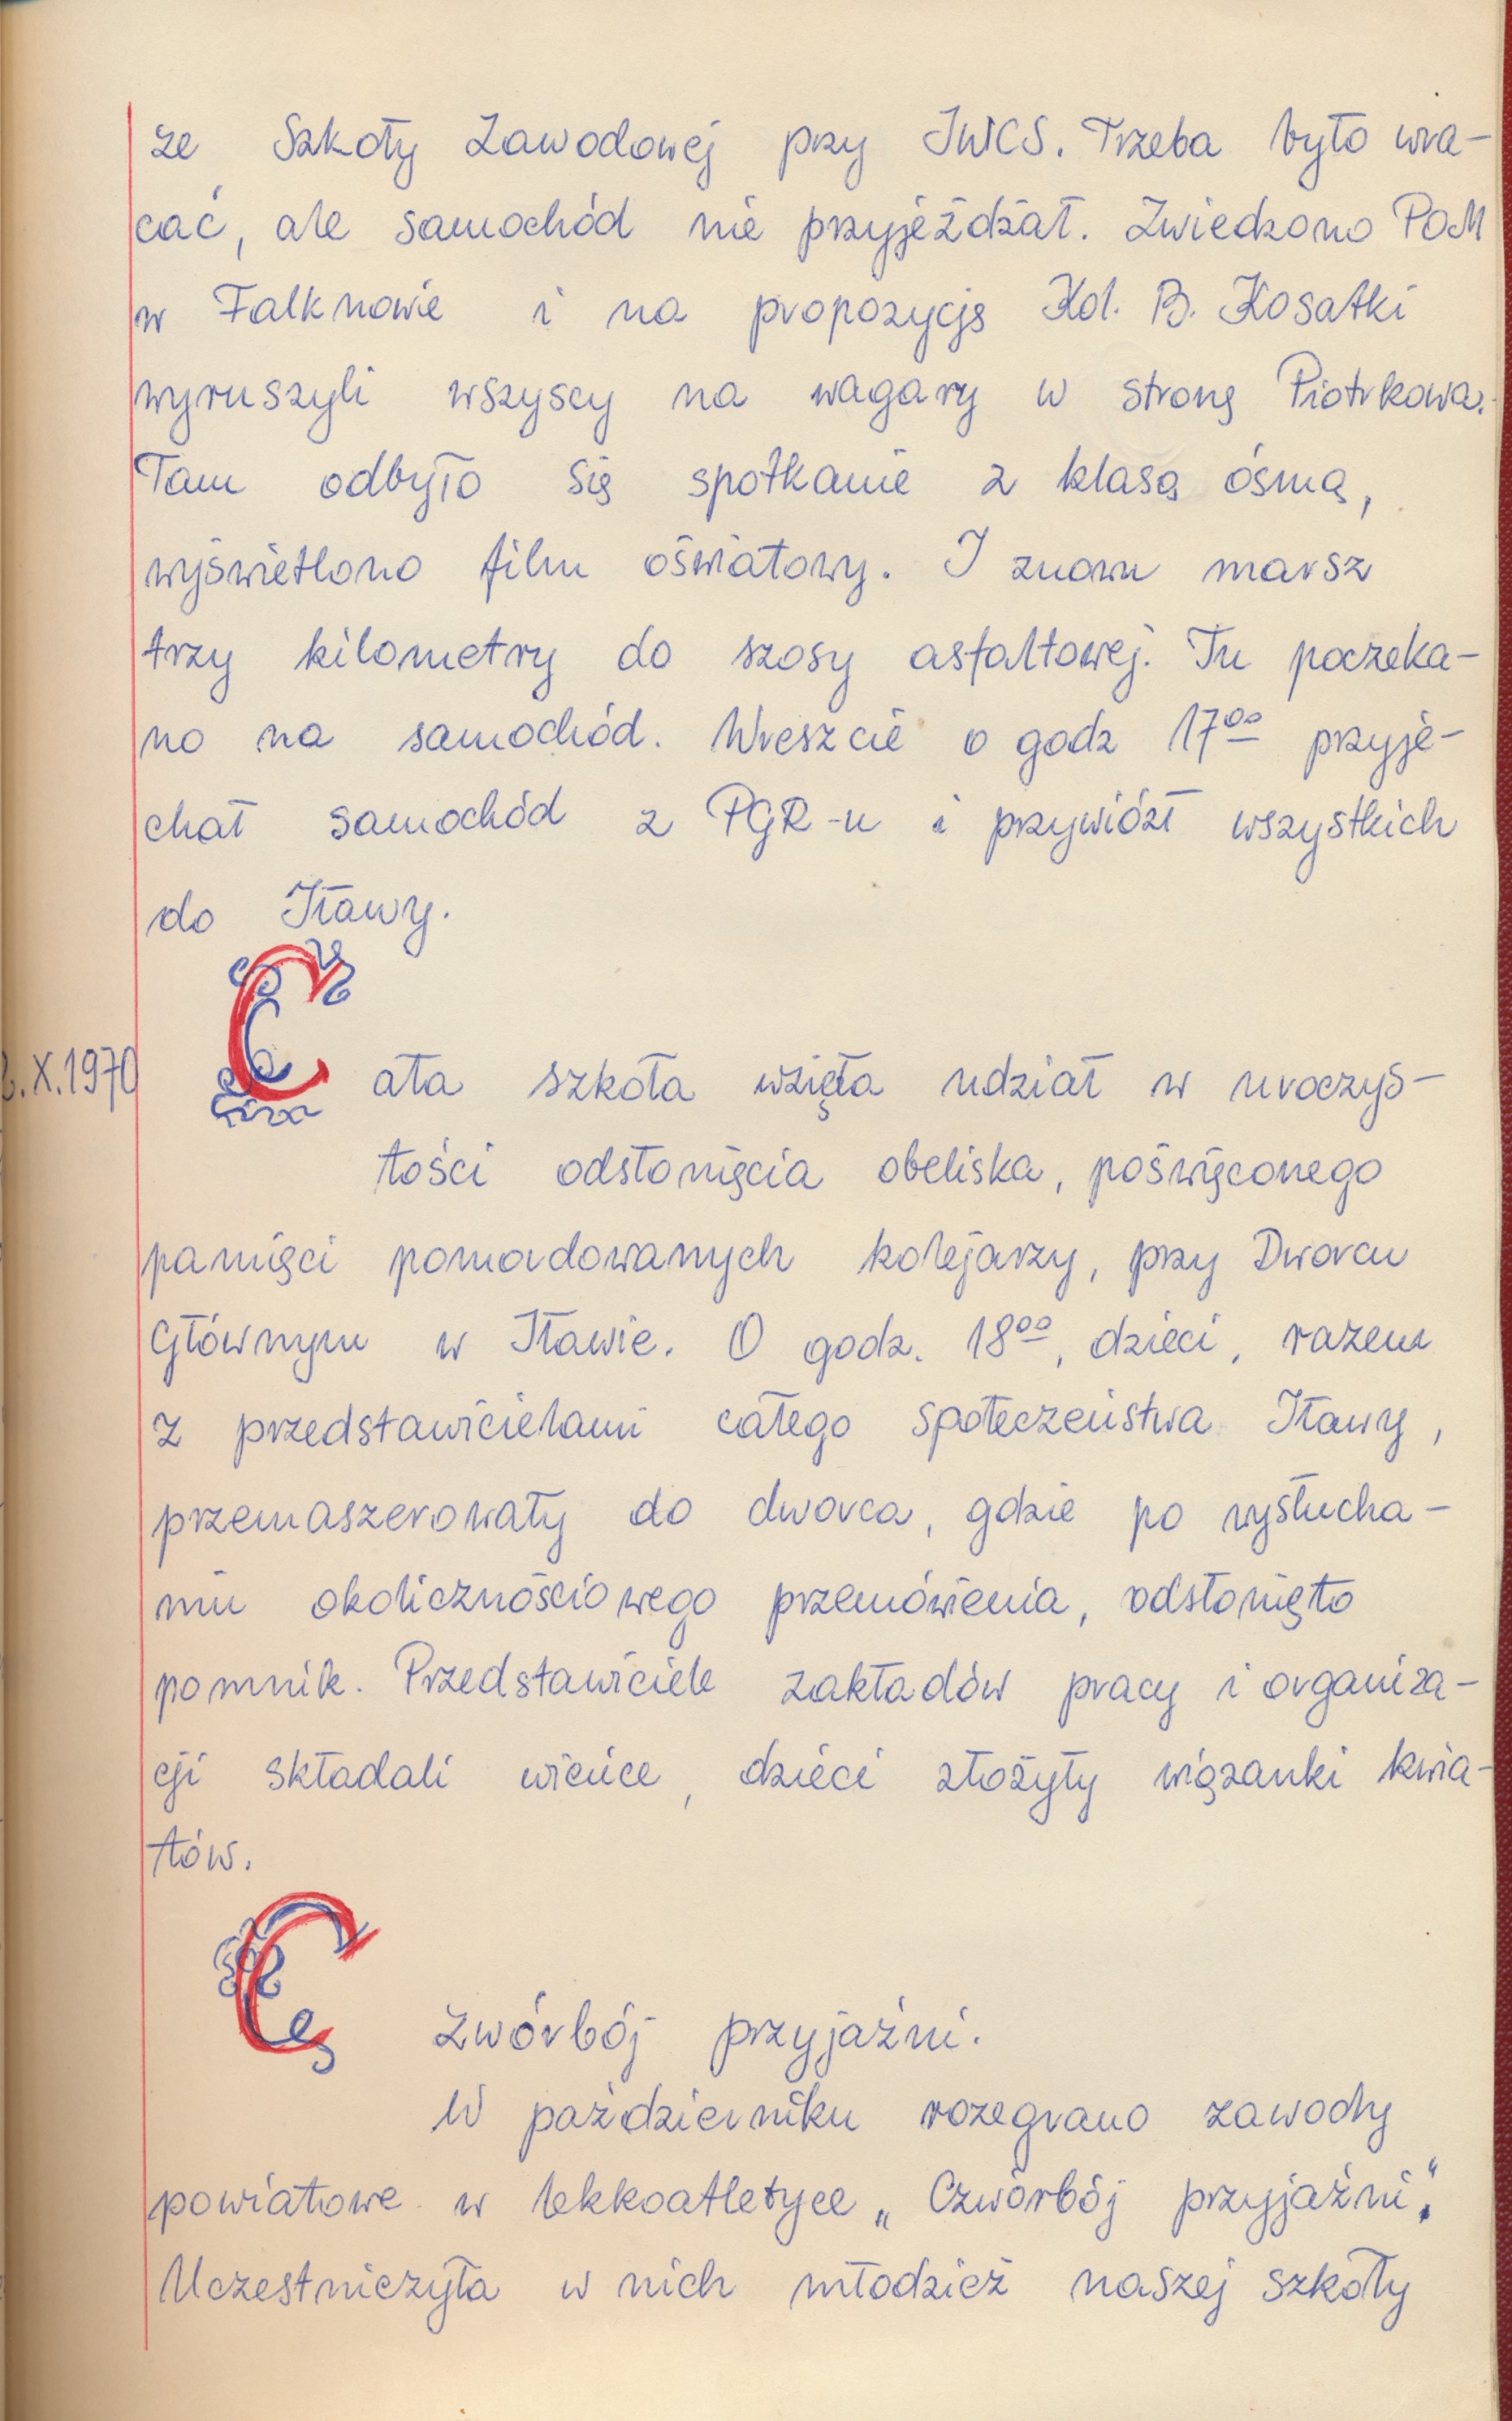 ze Szkoły Zawodowej przy IWCS. Trzeba było wra-
cać, ale samochód nie przyjeżdżał. Zwiedzono POM
w Falknowie i na propozycję Kol. B. Kosałki
wyruszyli wszyscy na wagary w stronę Piotrkowa.
Tam odbyło się spotkanie z klasą ósmą,
wyświetlono film oświatowy. I znowu marsz
trzy kilometry do szosy asfaltowej. Tu poczeka-
no na samochód. Wreszcie o godz 17⁰⁰ przyje-
chał samochód z PGR-u i przywiózł wszystkich
do Iławy.
X.1970 Cała szkoła wzięła udział w uroczys-
tości odsłonięcia obeliska, poświęconego
pamięci pomordowanych kolejarzy, przy Dworcu
Głównym w Iławie. O godz. 18⁰⁰, dzieci, razem
z przedstawicielami całego społeczeństwa Iławy,
przemaszerowały do dworca, gdzie po wysłucha-
niu okolicznościowego przemówienia, odsłonięto
pomnik. Przedstawiciele zakładów pracy i organiza-
cji składali wieńce, dzieci złożyły wiązanki kwia-
tów.
Czwórbój przyjaźni.
W październiku rozegrano zawody
powiatowe w lekkoatletyce „Czwórbój przyjaźni".
Uczestniczyła w nich młodzież naszej szkoły